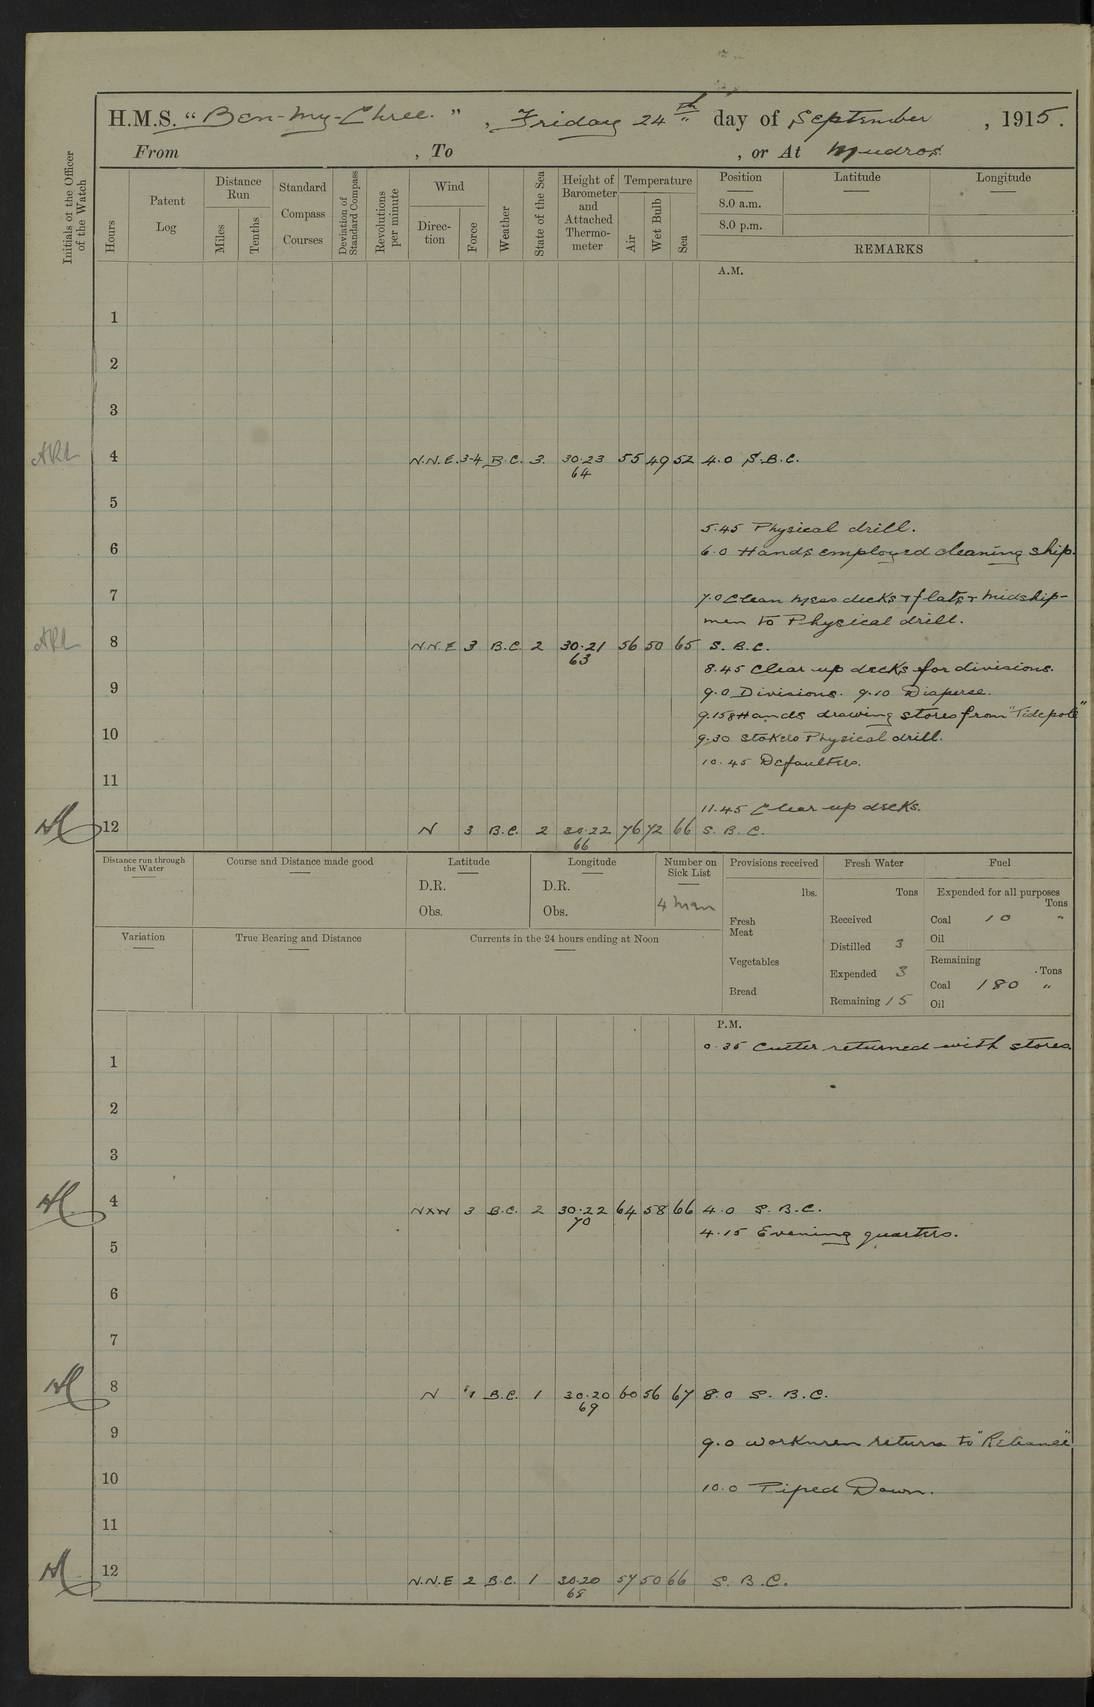 H.M.S. "Ben-my-Chree.", Friday 24th day of September, 1915.
From , To , or At Mudros
Initials of the Officer of the Watch
Hours
Patent Log
Distance Run
Miles
Tenths
Standard Compass Courses
Deviation of Standard Compass
Revolutions per minute
Wind
Direction
Force
Weather
State of the Sea
Height of Barometer and Attached Thermometer
Temperature
Air
Wet Bulb
Sea
Position Latitude Longitude
8.0 a.m.
8.0 p.m.
REMARKS
A.M.
1
2
3
4 N.N.E. 3-4 B.C. 3. 30.23 55 49 52 4.0 S.B.C.
64
5
5.45 Physical drill.
6 6.0 Hands employed cleaning ship.
7 7.0 Clean mess decks & flats & midship-
men to Physical drill.
8 N.N.E 3 B.C. 2 30.21 56 50 65 S.B.C.
63
8.45 Clear up decks for divisions.
9 9.0 Divisions. 9.10 Disperse.
Hands drawing stores from "Tidepole"
10 9.30 Stokers Physical drill.
10.45 Defaulters.
11
11.45 Clear up decks.
12 N 3 B.C. 2 30.22 76 72 66 S.B.C.
66
Distance run through the Water
Course and Distance made good
Latitude
D.R.
Obs.
Longitude
D.R.
Obs.
Number on Sick List
4 men
Provisions received
lbs.
Fresh Meat
Vegetables
Bread
Fresh Water
Tons
Received
Distilled 3
Expended 3
Remaining 15
Fuel
Expended for all purposes
Tons
Coal 10 "
Oil
Remaining
Tons
Coal 180 "
Oil
Variation
True Bearing and Distance
Currents in the 24 hours ending at Noon
P.M.
0.35 Cutter returned with stores
1
2
3
4 NXW 3 B.C. 2 30.22 64 58 66 4.0 S.B.C.
70
4.15 Evening quarters.
5
6
7
8 N 1 B.C. 1 30.20 60 56 67 8.0 S.B.C.
69
9 9.0 Workmen return to "Reliance"
10 10.0 Piped Down.
11
12 N.N.E 2 B.C. 1 30.20 57 50 66 S.B.C.
68